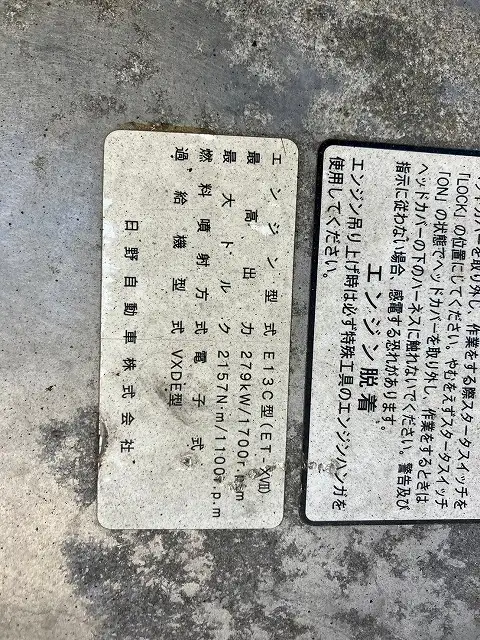 エンジン型式 E13C型(ET-XVII)
最高出力 279kW/1700r.p.m
最大トルク 2157N·m/1100r.p.m
燃料噴射方式 電子式
過給機型式 VXDE型
日野自動車株式会社
ヘッドカバーを取り外し、作業をする際スタータスイッチを
「LOCK」の位置にしてください。やむをえずスタータスイッチ
「ON」の状態でヘッドカバーを取り外し、作業をするときは
ヘッドカバーの下のハーネスに触れないでください。警告及び
指示に従わない場合、感電する恐れがあります。
エンジン脱着
エンジン吊り上げ時は必ず特殊工具のエンジンハンガを
使用してください。